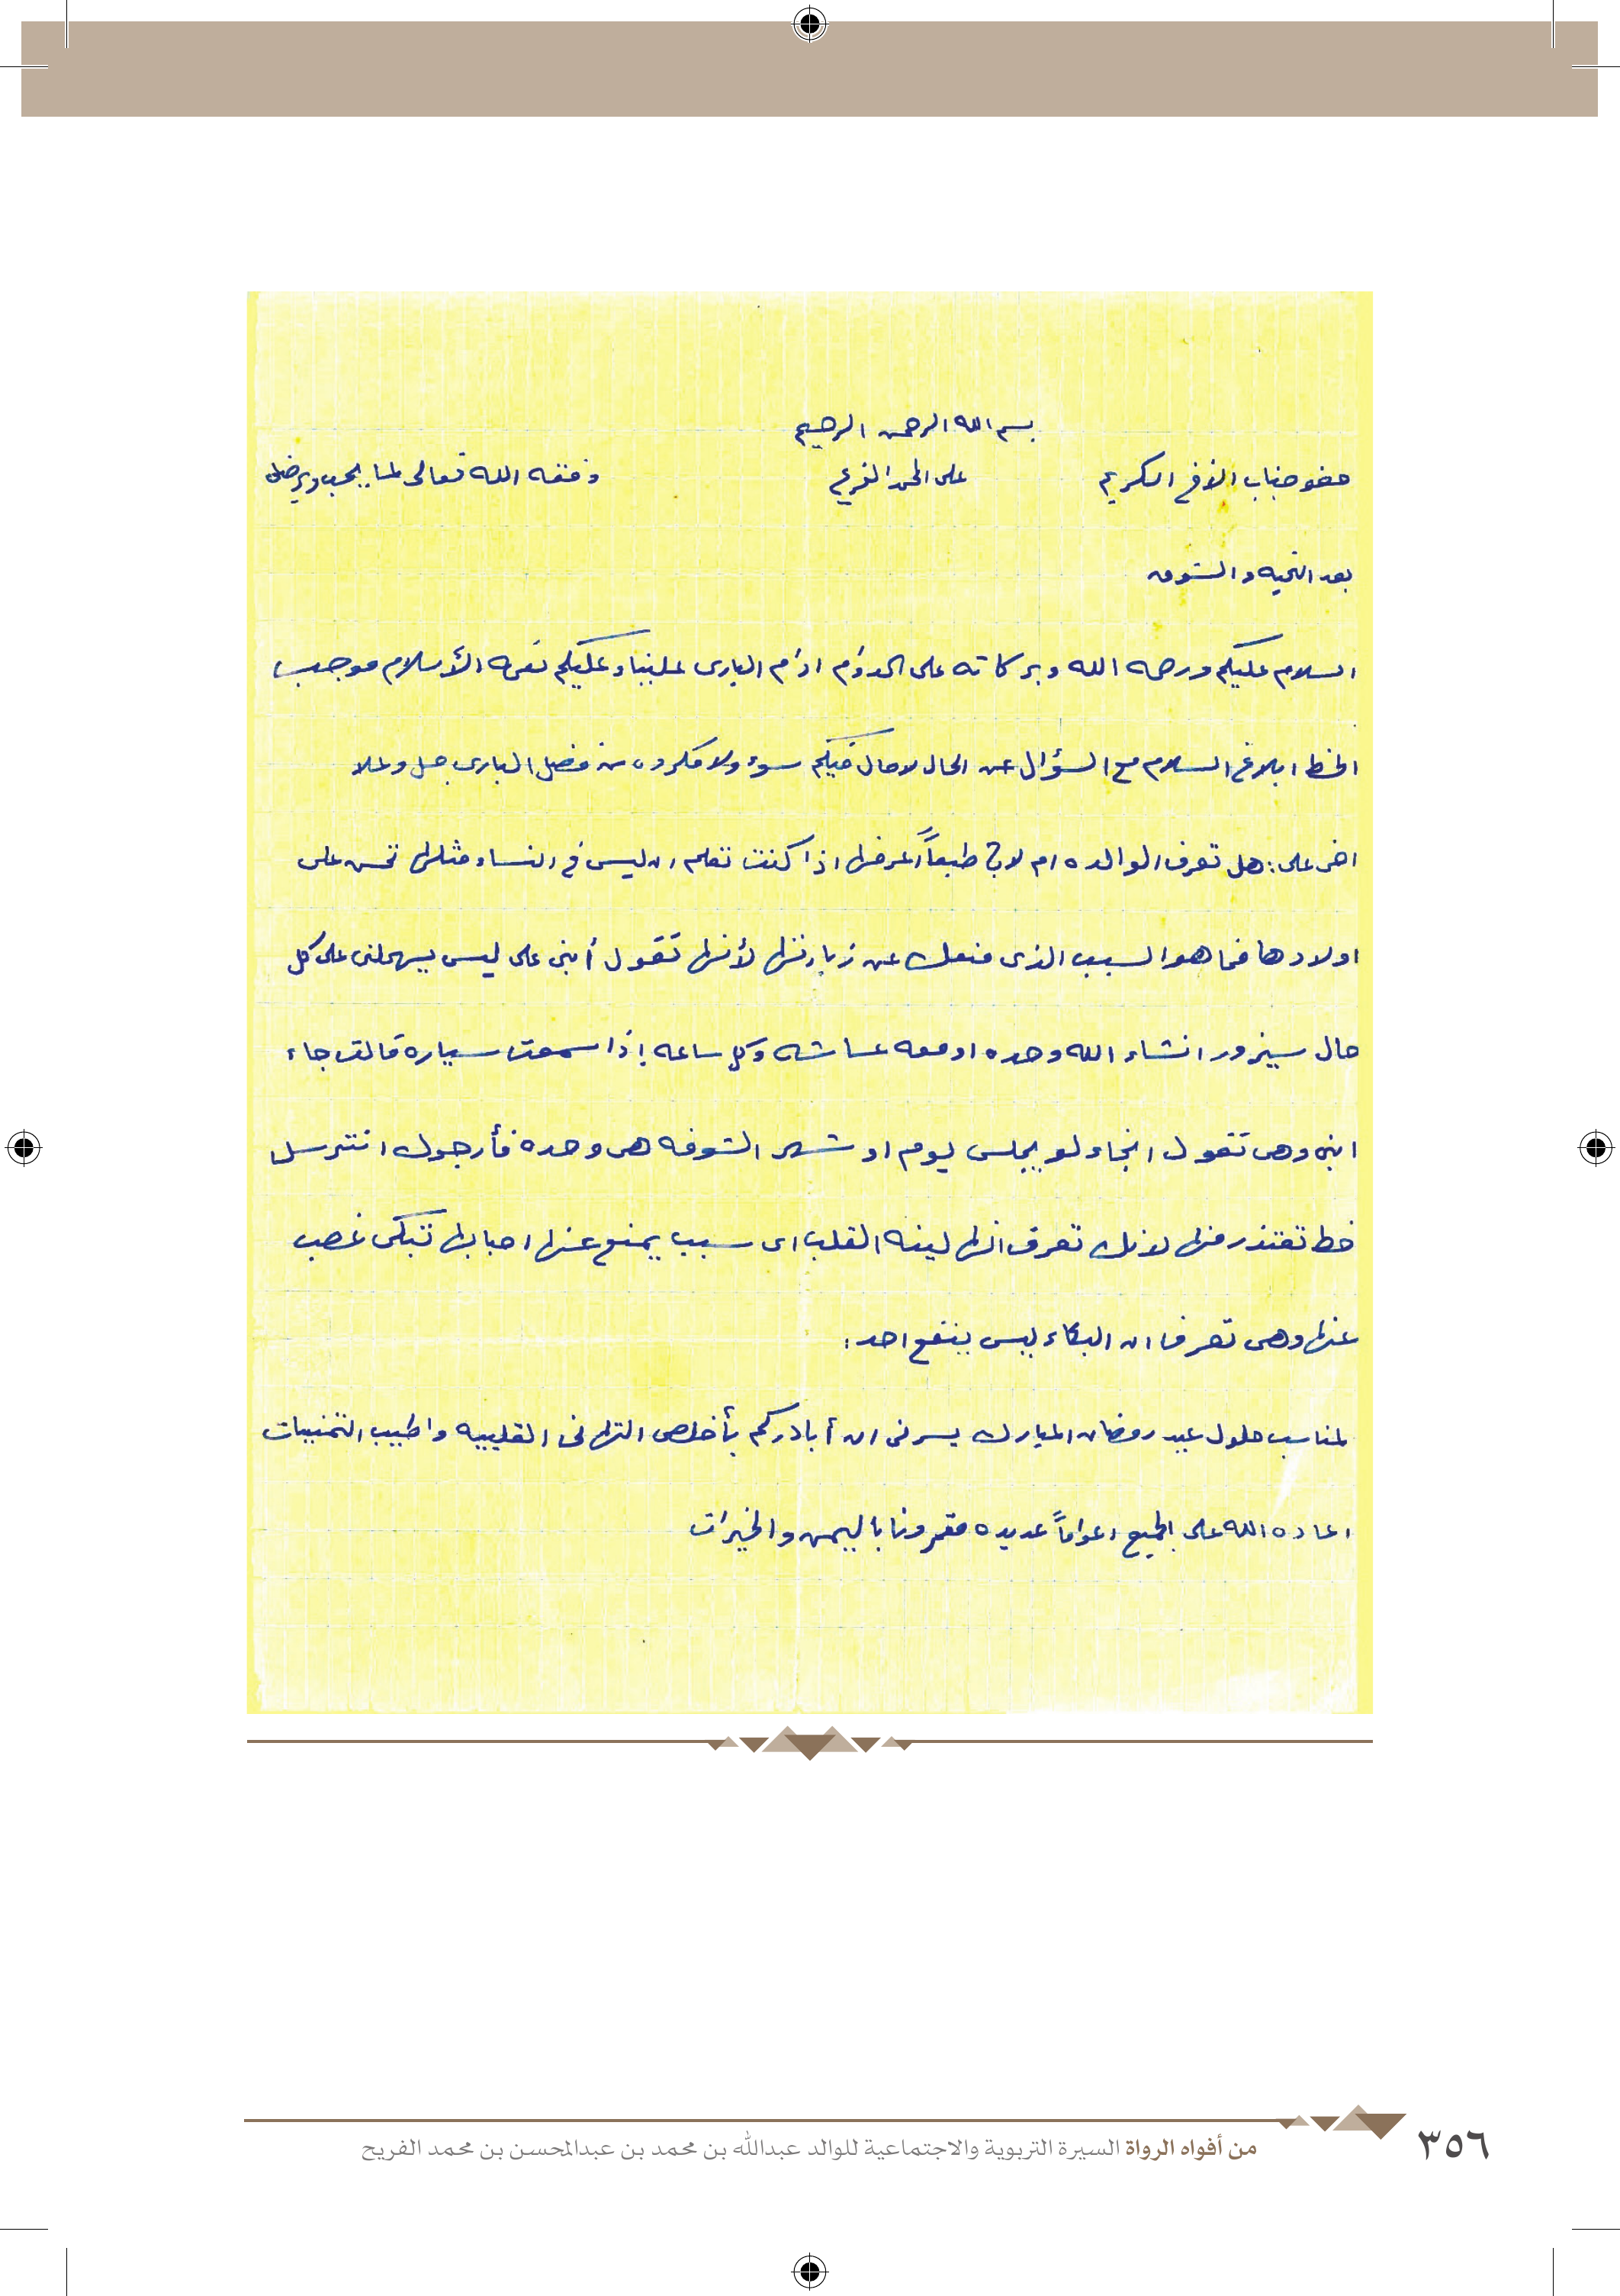 بسم الله الرحمن الرحيم
حضو جناب الأخ الكريم على الحمد الفريح وفقه الله تعالى لما يحب ويرضى
بعد التحيه والشوق
السلام عليكم ورحمه الله وبركاته على الدوام ادام البارى علينا وعليكم نعمه الأسلام موجب
الخط ابلاغ السلام مع السؤال عن الحال لاحال فيكم سوء ولا مكروه من فضل البارى جل وعلا
اخى على: هل تعرف الوالده ام لا؟ طبعاً اعرفها اذا كنت تعلم ان ليس في النساء مثلها تحن على
اولادها فما هو السبب الذى منعك عن زيارتها لأنها تقول أبنى على ليس يهملنى على كل
حال سيزور انشاء الله وحده او معه عائشه وكل ساعه إذا سمعت سياره قالت جاء
ابنى وهى تقول انجاء لو يجلس يوم او شهر الشوفه هى وحده فأرجوك انترسل
خط تعتذر منها لانك تعرف انها لينه القلب اى سبب يمنع عنها احبابها تبكى غصب
عنها وهى تعرف ان البكاء ليس ينفع احد:
لمناسب حلول عيد رمضان المبارك يسرنى ان أبادركم بأخلص التهانى القلبيه واطيب التمنيات
اعاده الله على الجميع اعواماً عديده مقرونا باليمن والخيرات
٣٥٦
من أفواه الرواة السيرة التربوية والاجتماعية للوالد عبدالله بن محمد بن عبدالمحسن بن محمد الفريح